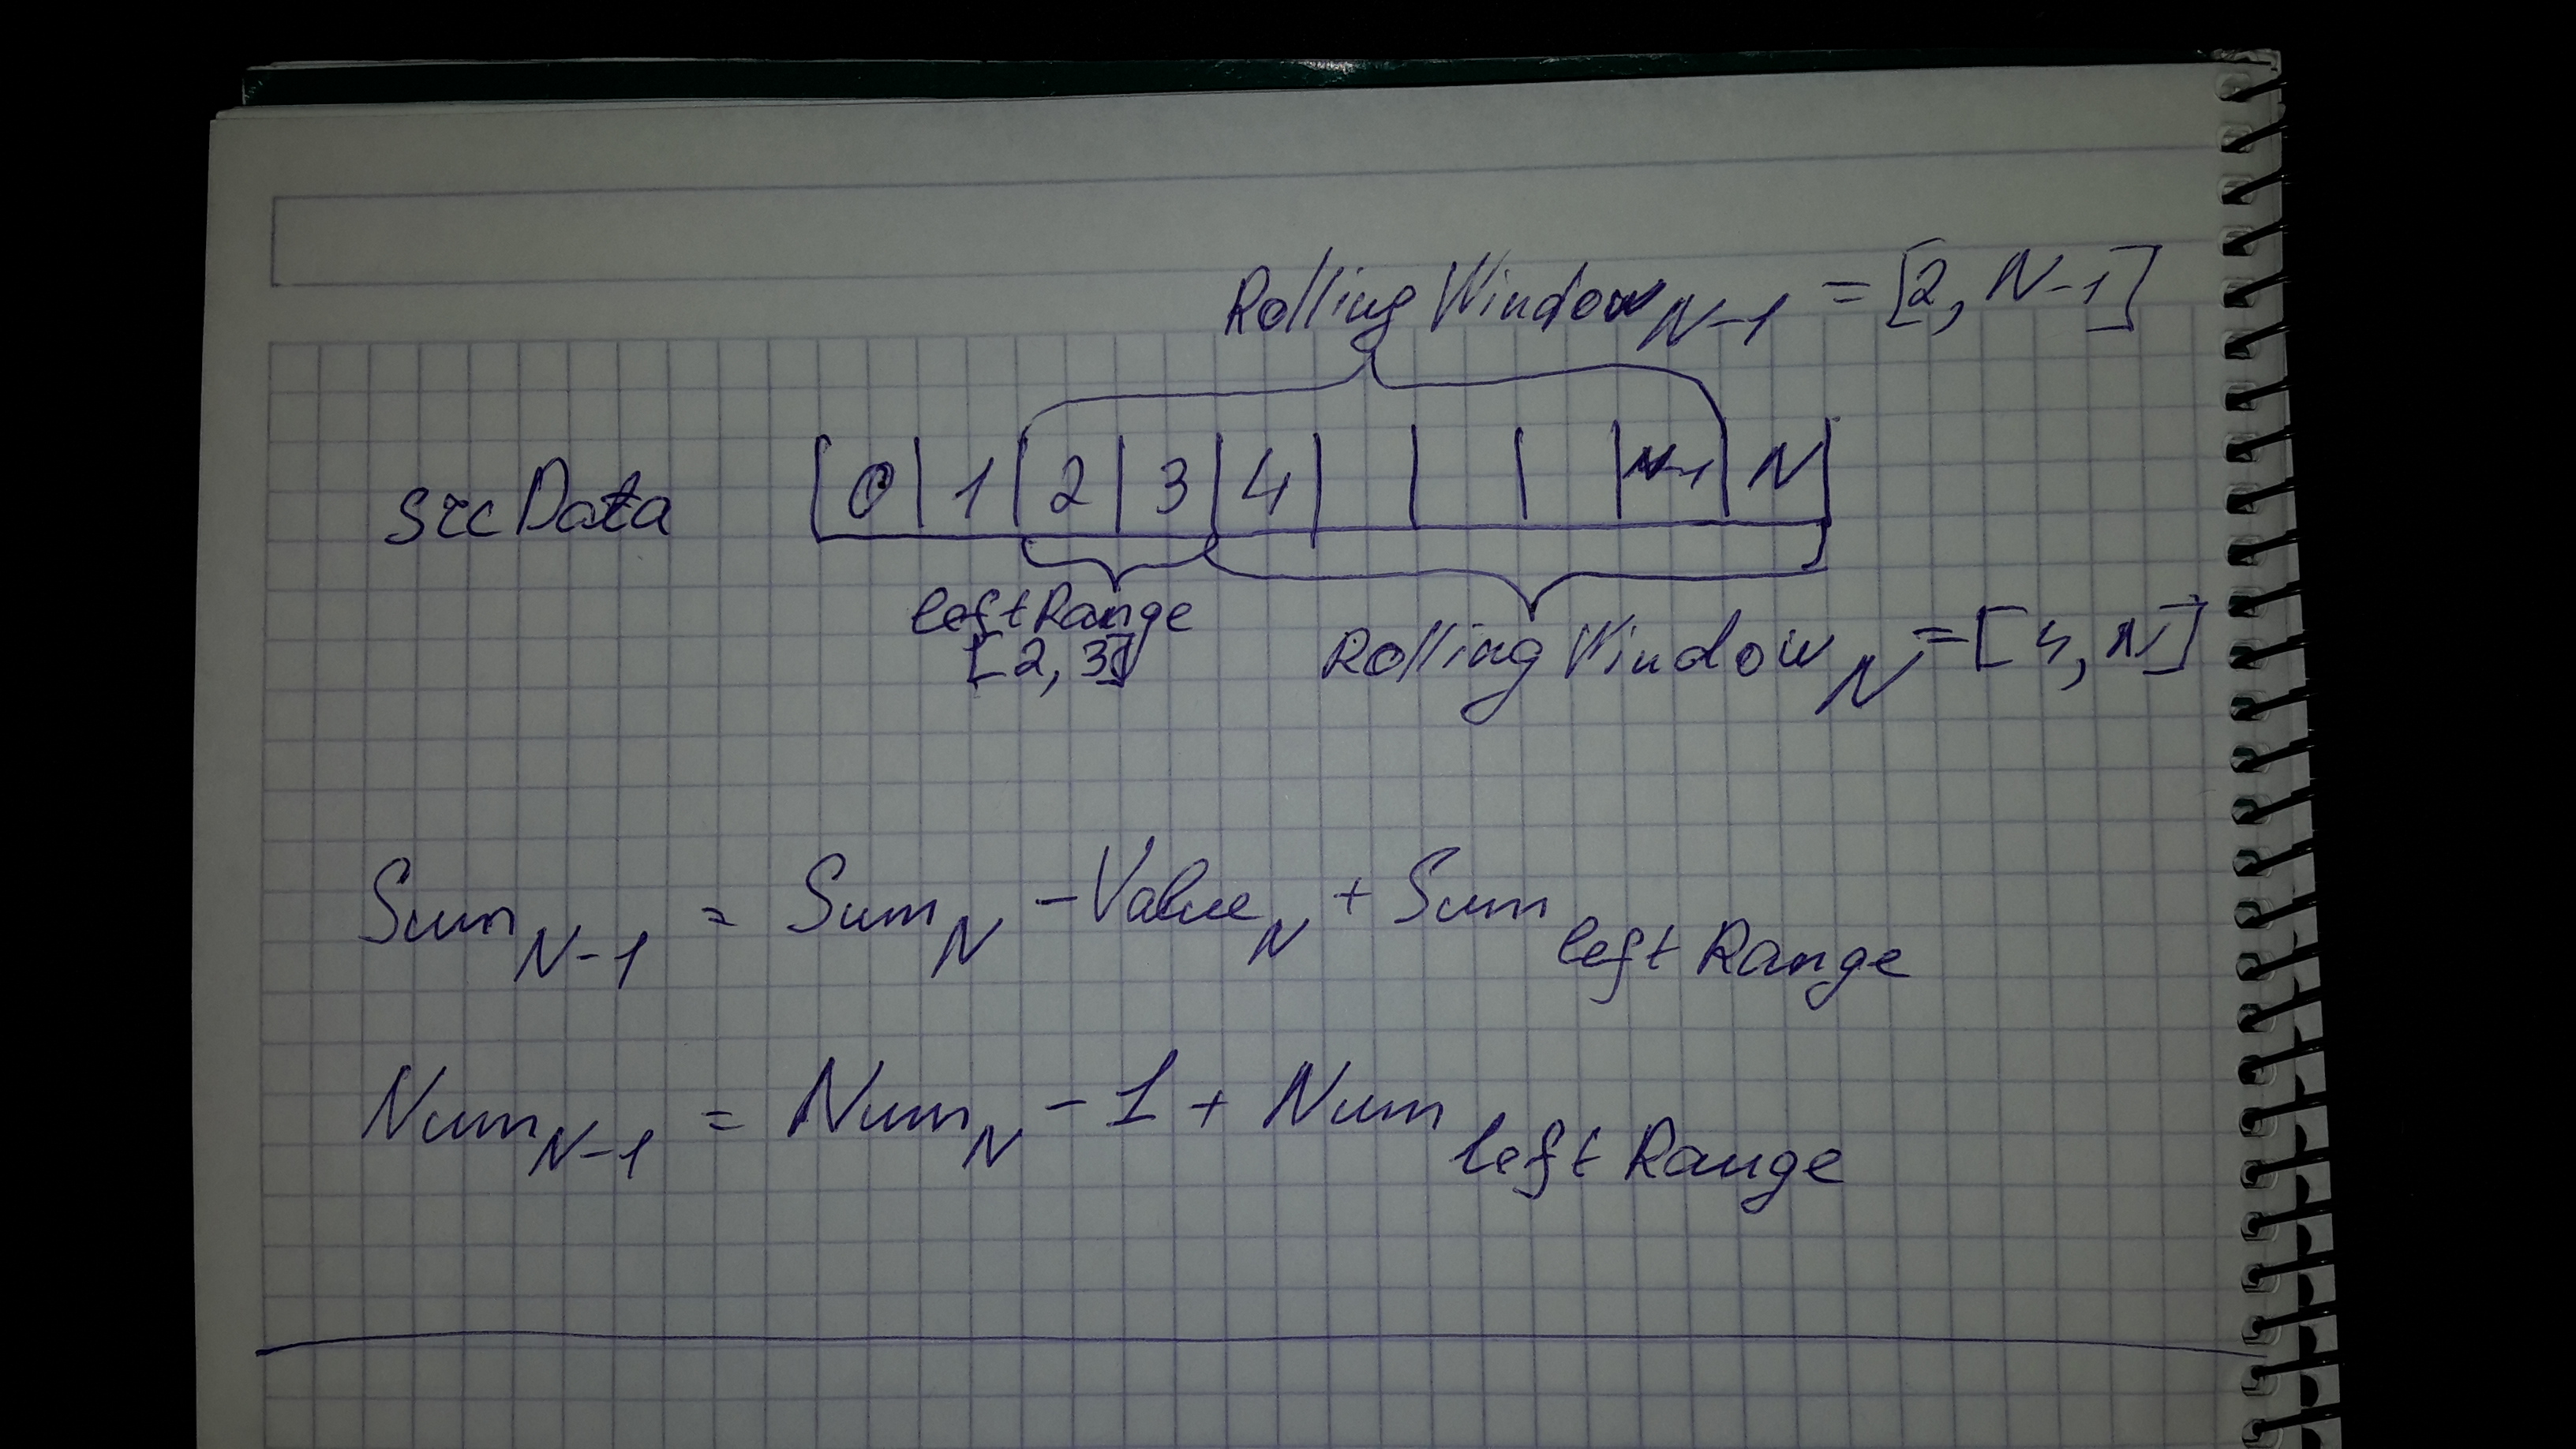 Rolling Window N-1 = [2, N-1]
srcData 0 1 2 3 4 N-1 N
left Range
[2, 3]
Rolling Window N = [4, N]
Sum N-1 = Sum N - Value N + Sum left Range
Num N-1 = Num N - 1 + Num left Range